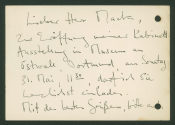 Lieber Herr Macke,
zur Eröffnung meiner Kabinett
Ausstellung im Museum am
Ostwall Dortmund, am Sonntag
31. Mai, 11.30, darf ich Sie
herzlichst einladen.
Mit den besten Grüßen, bitte auch